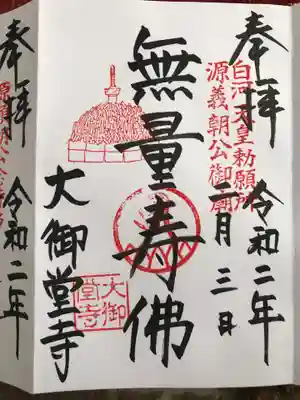 奉拝
白河天皇勅願所
源義朝公御廟
令和二年
二月三日
無量寿佛
大御堂寺
大御
堂寺
奉拝
令和二年